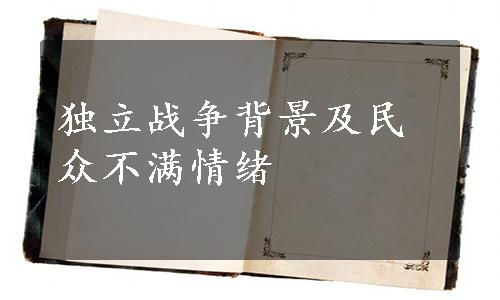 独立战争背景及民
众不满情绪